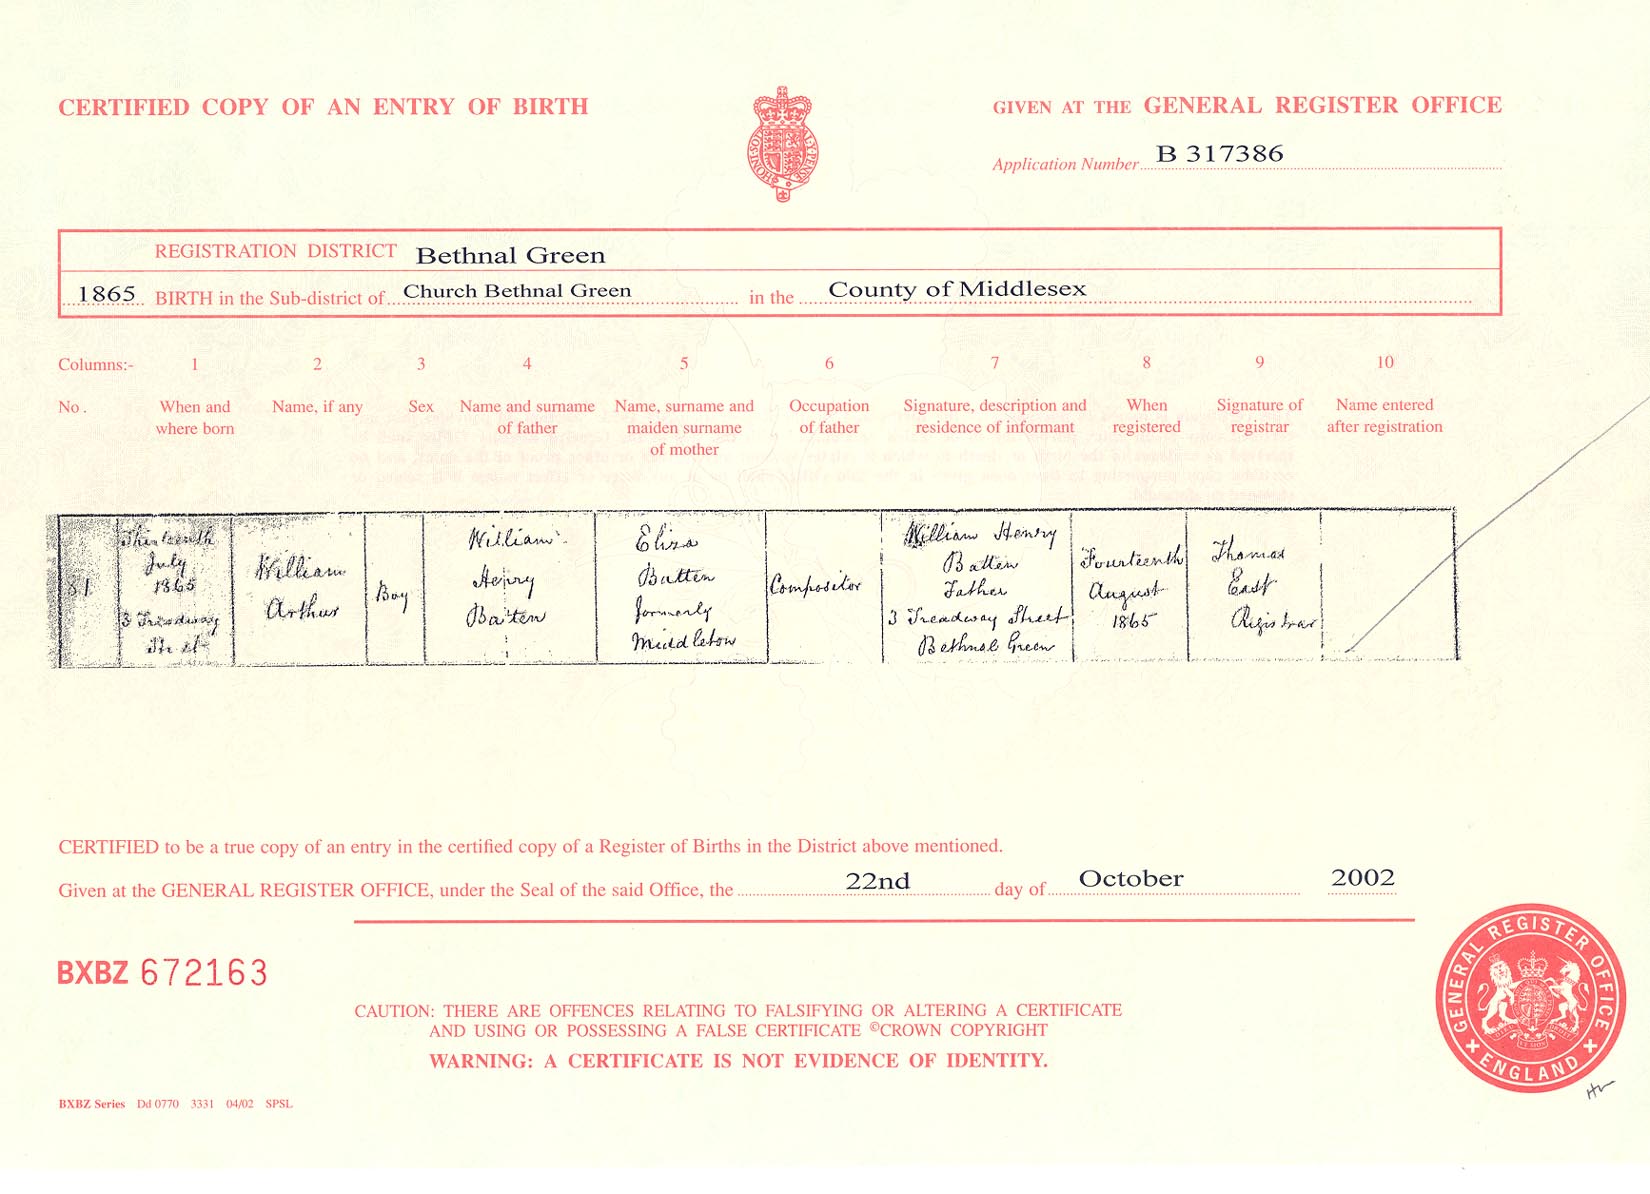 CERTIFIED COPY OF AN ENTRY OF BIRTH
GIVEN AT THE GENERAL REGISTER OFFICE
Application Number B 317386
REGISTRATION DISTRICT Bethnal Green
1865 BIRTH in the Sub-district of Church Bethnal Green in the County of Middlesex
Columns:- 1 2 3 4 5 6 7 8 9 10
No. When and where born Name, if any Sex Name and surname of father Name, surname and maiden surname of mother Occupation of father Signature, description and residence of informant When registered Signature of registrar Name entered after registration
81
Thirteenth
July
1865
3 Treadway
Street
William
Arthur
Boy
William
Henry
Batten
Eliza
Batten
formerly
Middleton
Compositor
William Henry
Batten
Father
3 Treadway Street
Bethnal Green
Fourteenth
August
1865
Thomas
East
Registrar
CERTIFIED to be a true copy of an entry in the certified copy of a Register of Births in the District above mentioned.
Given at the GENERAL REGISTER OFFICE, under the Seal of the said Office, the 22nd day of October 2002
BXBZ 672163
CAUTION: THERE ARE OFFENCES RELATING TO FALSIFYING OR ALTERING A CERTIFICATE
AND USING OR POSSESSING A FALSE CERTIFICATE ©CROWN COPYRIGHT
WARNING: A CERTIFICATE IS NOT EVIDENCE OF IDENTITY.
GENERAL REGISTER OFFICE
ENGLAND
BXBZ Series Dd 0770 3331 04/02 SPSL